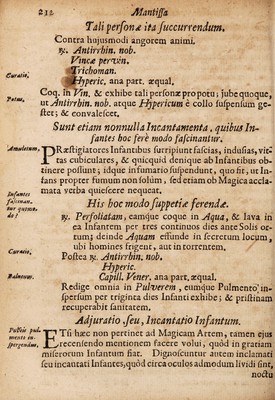 232 Mantissa
Tali personæ ita succurrendum.
Contra hujusmodi angorem animi.
℞. Antirrhin. nob.
Vincæ pervin.
Trichoman.
Hyperic. ana part. æqual.
Curatio,
Coq. in Vin. & exhibe tali personæ pro potu; jube quoque,
Potus,
ut Antirrhin. nob. atque Hypericum è collo suspensum ge-
stet; & convalescet.
Sunt etiam nonnulla Incantamenta, quibus In-
fantes hoc ferè modo fascinantur.
Amuletum,
PRæstigiatores Infantibus surripiunt fascias, indusias, vit-
tas cubiculares, & quicquid denique ab Infantibus ob-
tinere possunt; idque infumatio suspendunt, quo fit, ut In-
fans propter fumum non solùm, sed etiam ob Magica accla-
mata verba quiescere nequeat.
Infantes
fascinan-
tur quomo-
do?
His hoc modo suppetiæ ferendæ.
℞. Perfoliatam, eamque coque in Aqua, & lava in
ea Infantem per tres continuos dies ante Solis or-
tum; deinde Aquam effunde in secretum locum,
ubi homines frigent, aut in torrentem,
Curatio,
Postea ℞. Antirrhin. nob.
Hyperic.
Balneum.
Capill. Vener. ana part. æqual.
Redige omnia in Pulverem, eumque Pulmento in-
spersum per triginta dies Infanti exhibe; & pristinam
recuperabit sanitatem.
Adjuratio, seu, Incantatio Infantum.
Pulvis pul-
mento in-
spergendus,
ETsi hæc non pertinet ad Magicam Artem, tamen ejus
recensendo mentionem facere volui, quòd in gratiam
miserorum Infantum fiat. Dignoscuntur autem inclamati
seu incantati Infantes, quòd circa oculos admodum lividi sint,
noctu